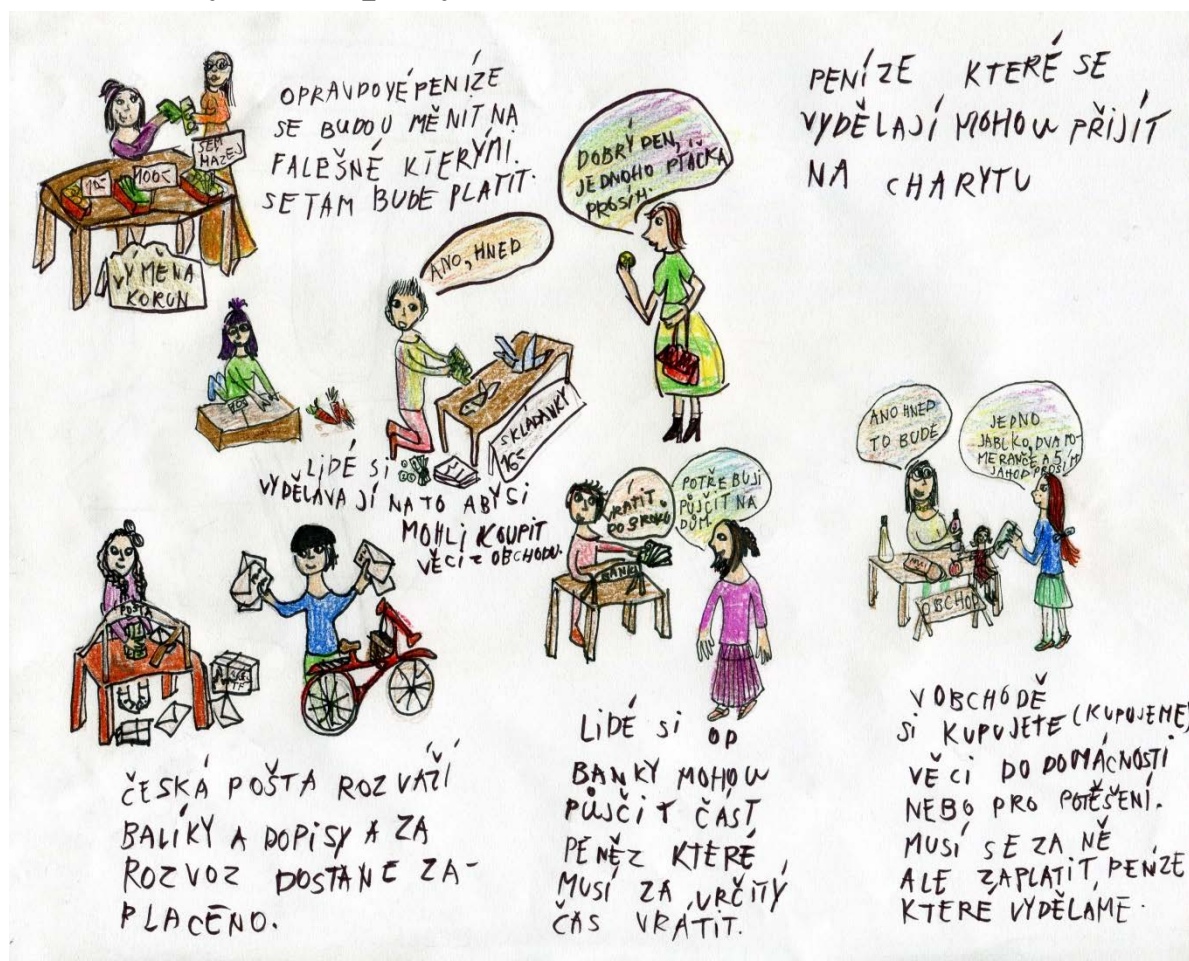 OPRAVDOVÉ PENÍZE
SE BUDOU MĚNIT NA
FALEŠNÉ KTERÝMI.
SE TAM BUDE PLATIT.
SEM
HAZEJ
10,-
100,-
VÝMĚNA
KORUN
DOBRÝ DEN,
JEDNOHO PTÁČKA
PROSÍM.
PENÍZE KTERÉ SE
VYDĚLAJÍ MOHOU PŘIJÍT
NA CHARYTU
ANO, HNED
SKLÁDANKY
LIDÉ SI
VYDĚLAVAJÍ NA TO ABY SI
MOHLI KOUPIT
VĚCI Z OBCHODU.
VRÁTIT
DO 5 ROKŮ
BANKA
POTŘEBUJI
PŮJČIT NA
DŮM.
ANO HNED
TO BUDE
JEDNO
JABLKO, DVA PO-
MERANČE A 5
JAHOD PROSÍM
OBCHOD
POŠTA
ČESKÁ POŠTA ROZVAŽÍ
BALÍKY A DOPISY A ZA
ROZVOZ DOSTANE ZA-
PLACENO.
LIDÉ SI OD
BANKY MOHOU
PŮJČIT ČÁST
PENĚZ KTERÉ
MUSÍ ZA URČITÝ
ČAS VRÁTIT.
V OBCHODĚ
SI KUPUJETE (KUPUJEME)
VĚCI DO DOMÁCNOSTI
NEBO PRO POTĚŠENÍ.
MUSÍ SE ZA NĚ
ALE ZAPLATIT PENÍZE
KTERÉ VÝDĚLÁME.